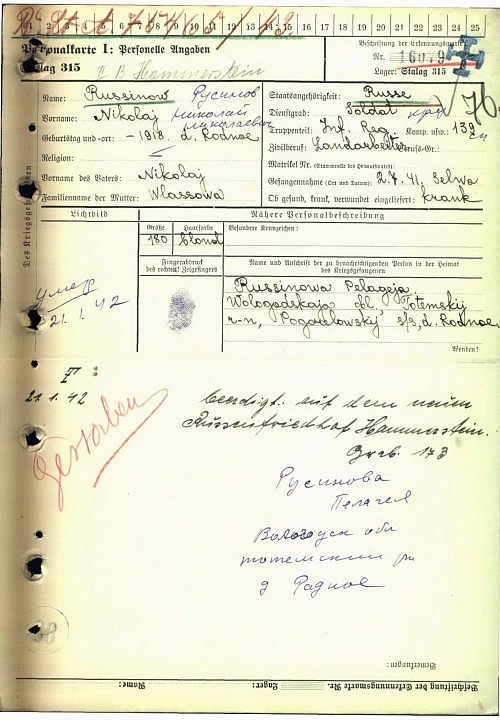 2 3 4 5 6 7 8 9 10 11 12 13 14 15 16 17 18 19 20 21 22 23 24 25
Personalkarte I: Personelle Angaben
Beschriftung der Erkennungsmarke
Stalag 315 II B Hammerstein
Nr. 16079
Lager: Stalag 315
76
Des Kriegsgefangenen
Name: Russinow Русинов
Vorname: Nikolaj Николай
Николаевич
Geburtstag und -ort: -1918. d. Rodnoe
Religion:
Vorname des Vaters: Nikolaj
Familienname der Mutter: Wlassowa
Staatsangehörigkeit: Russe
Dienstgrad: Soldat
Truppenteil: Inf. Reg. Komp. usw.: 139
Zivilberuf: Landarbeiter Berufs-Gr.:
Matrikel Nr. (Stammrolle des Heimatstaates):
Gefangennahme (Ort und Datum): 2.7.41, Selwa
Ob gesund, krank, verwundet eingeliefert: krank
Lichtbild
Nähere Personalbeschreibung
Größe Haarfarbe Besondere Kennzeichen:
180 blond
Fingerabdruck
des rechten! Zeigefingers
Name und Anschrift der zu benachrichtigenden Person in der Heimat
des Kriegsgefangenen
Russinowa Pelageja,
Wologodskaja obl, Totemskij
r-n, Pogorelowskij s/s, d. Rodnoe.
Wenden!
умер
21.1.42
21.1.42
Gestorben
beerdigt. auf dem neuen
Russenfriedhof Hammerstein.
Grab. 173
Русинова
Пелагея
Вологодск обл
тотемский рн
д Радное
38
Bemerkungen:
Beschriftung der Erkennungsmarke Nr. Lager: Name: